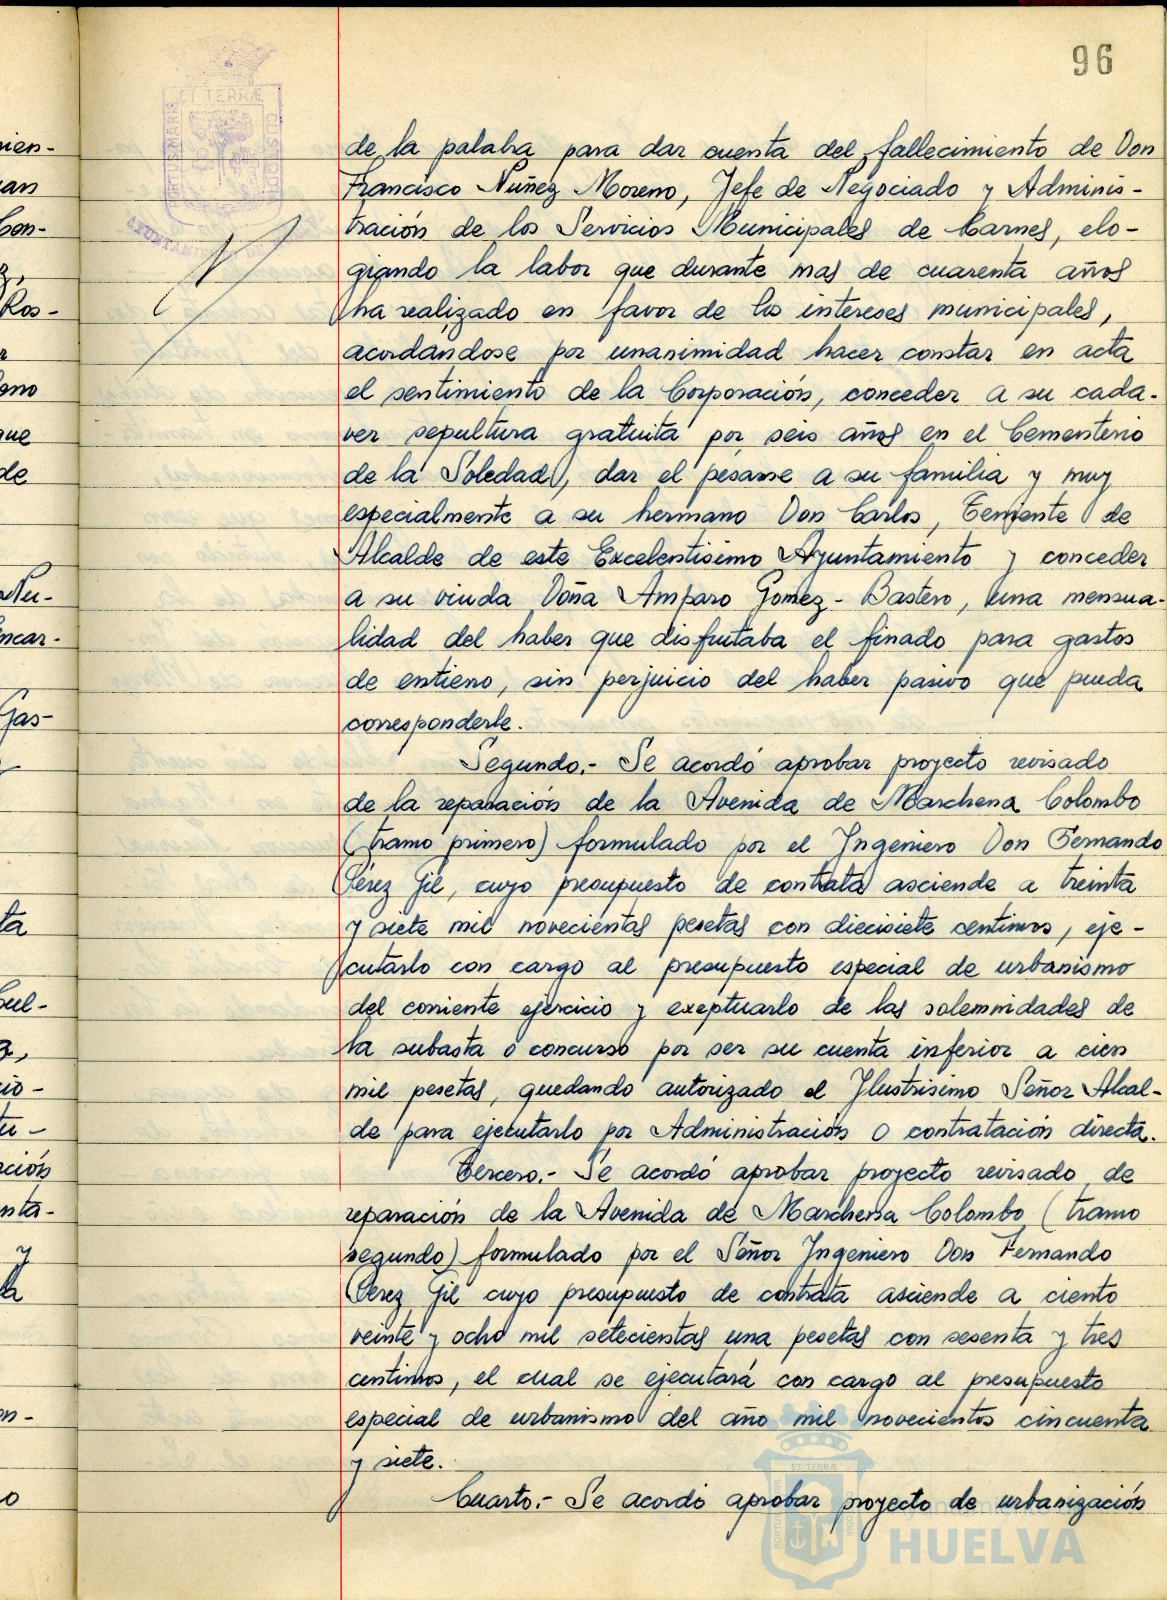 96
de la palabra para dar cuenta del fallecimiento de Don
Francisco Nuñez Moreno, Jefe de Negociado y Adminis-
tración de los Servicios Municipales de Carnes, elo-
giando la labor que durante mas de cuarenta años
ha realizado en favor de los intereses municipales,
acordandose por unanimidad hacer constar en acta
el sentimiento de la Corporación, conceder a su cada-
ver sepultura gratuita por seis años en el Cementerio
de la Soledad, dar el pésame a su familia y muy
especialmente a su hermano Don Carlos, Teniente de
Alcalde de este Excelentisimo Ayuntamiento y conceder
a su viuda Doña Amparo Gomez-Bastero, una mensua-
lidad del haber que disfrutaba el finado para gastos
de entierro, sin perjuicio del haber pasivo que pueda
corresponderle.
Segundo.- Se acordó aprobar proyecto revisado
de la reparación de la Avenida de Marchena Colombo
(tramo primero) formulado por el Ingeniero Don Fernando
Pérez Gil, cuyo presupuesto de contrata asciende a treinta
y siete mil novecientas pesetas con diecisiete centimos, eje-
cutarlo con cargo al presupuesto especial de urbanismo
del corriente ejercicio y exeptuarlo de las solemnidades de
la subasta o concurso por ser su cuenta inferior a cien
mil pesetas, quedando autorizado el Ilustrisimo Señor Alcal-
de para ejecutarlo por Administración o contratación directa.
Tercero.- Se acordó aprobar proyecto revisado de
reparación de la Avenida de Marchena Colombo (tramo
segundo) formulado por el Señor Ingeniero Don Fernando
Pérez Gil cuyo presupuesto de contrata asciende a ciento
veinte y ocho mil setecientas una pesetas con sesenta y tres
centimos, el cual se ejecutará con cargo al presupuesto
especial de urbanismo del año mil novecientos cincuenta
y siete.
Cuarto.- Se acordó aprobar proyecto de urbanización
HUELVA